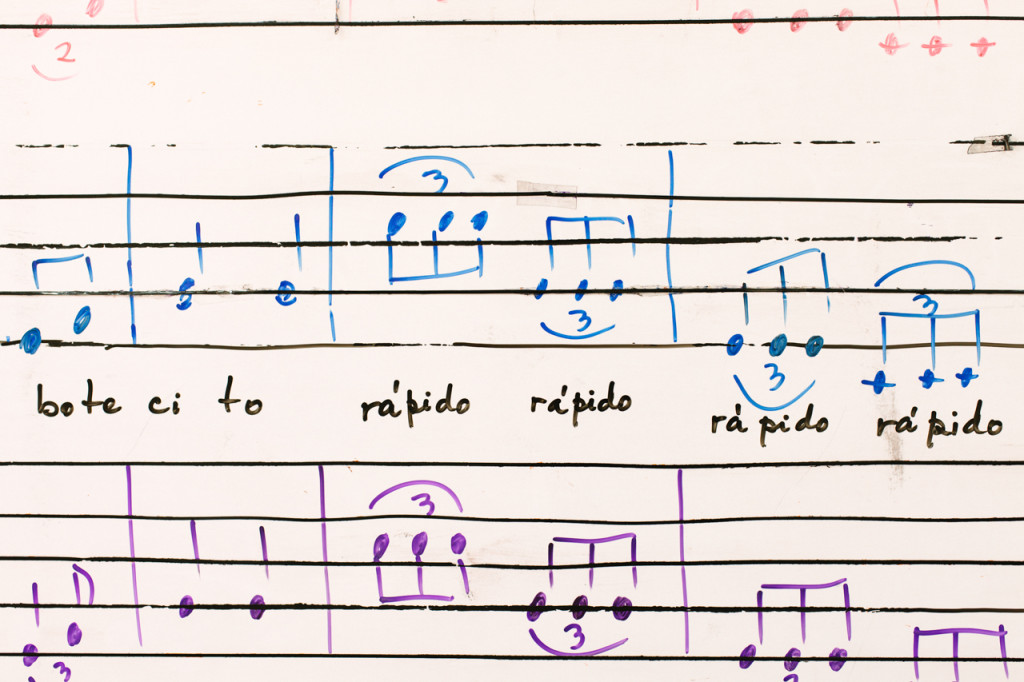 2
3
3
3
3
bote ci to rápido rápido rápido rápido
3
3
3